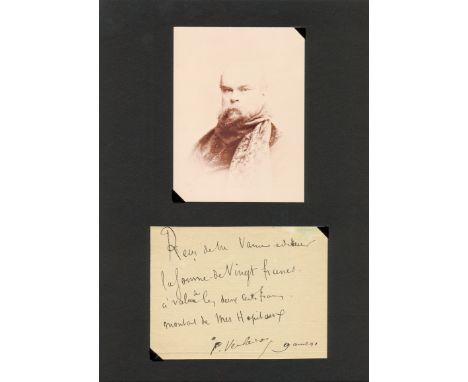 Reçu de M Vanier editeur
la somme de Vingt francs
à valoir les deux cents francs
montant de Mes Hopitaux
P. Verlaine